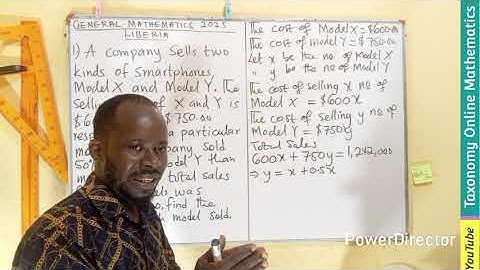 GENERAL MATHEMATICS 2025
LIBERIA
1) A company sells two
kinds of smartphones
Model X and Model Y. The
Selling of X and Y is
$6 $750.00
resp a particular
m pany sold
50% del Y than
total sales
els was
o, find the
h model sold.
The cost of Model X = $600.00
The cost of model Y = $750.00
Let x be the no of Model X
" y be the no of Model Y
The cost of selling x no of
Model X = $600x
The cost of selling y no of
Model Y = $750y
Total Sales
600x + 750y = 1,242,000
⇒ y = x + 0.5x
PowerDirector
Taxonomy Online Mathematics
YouTube